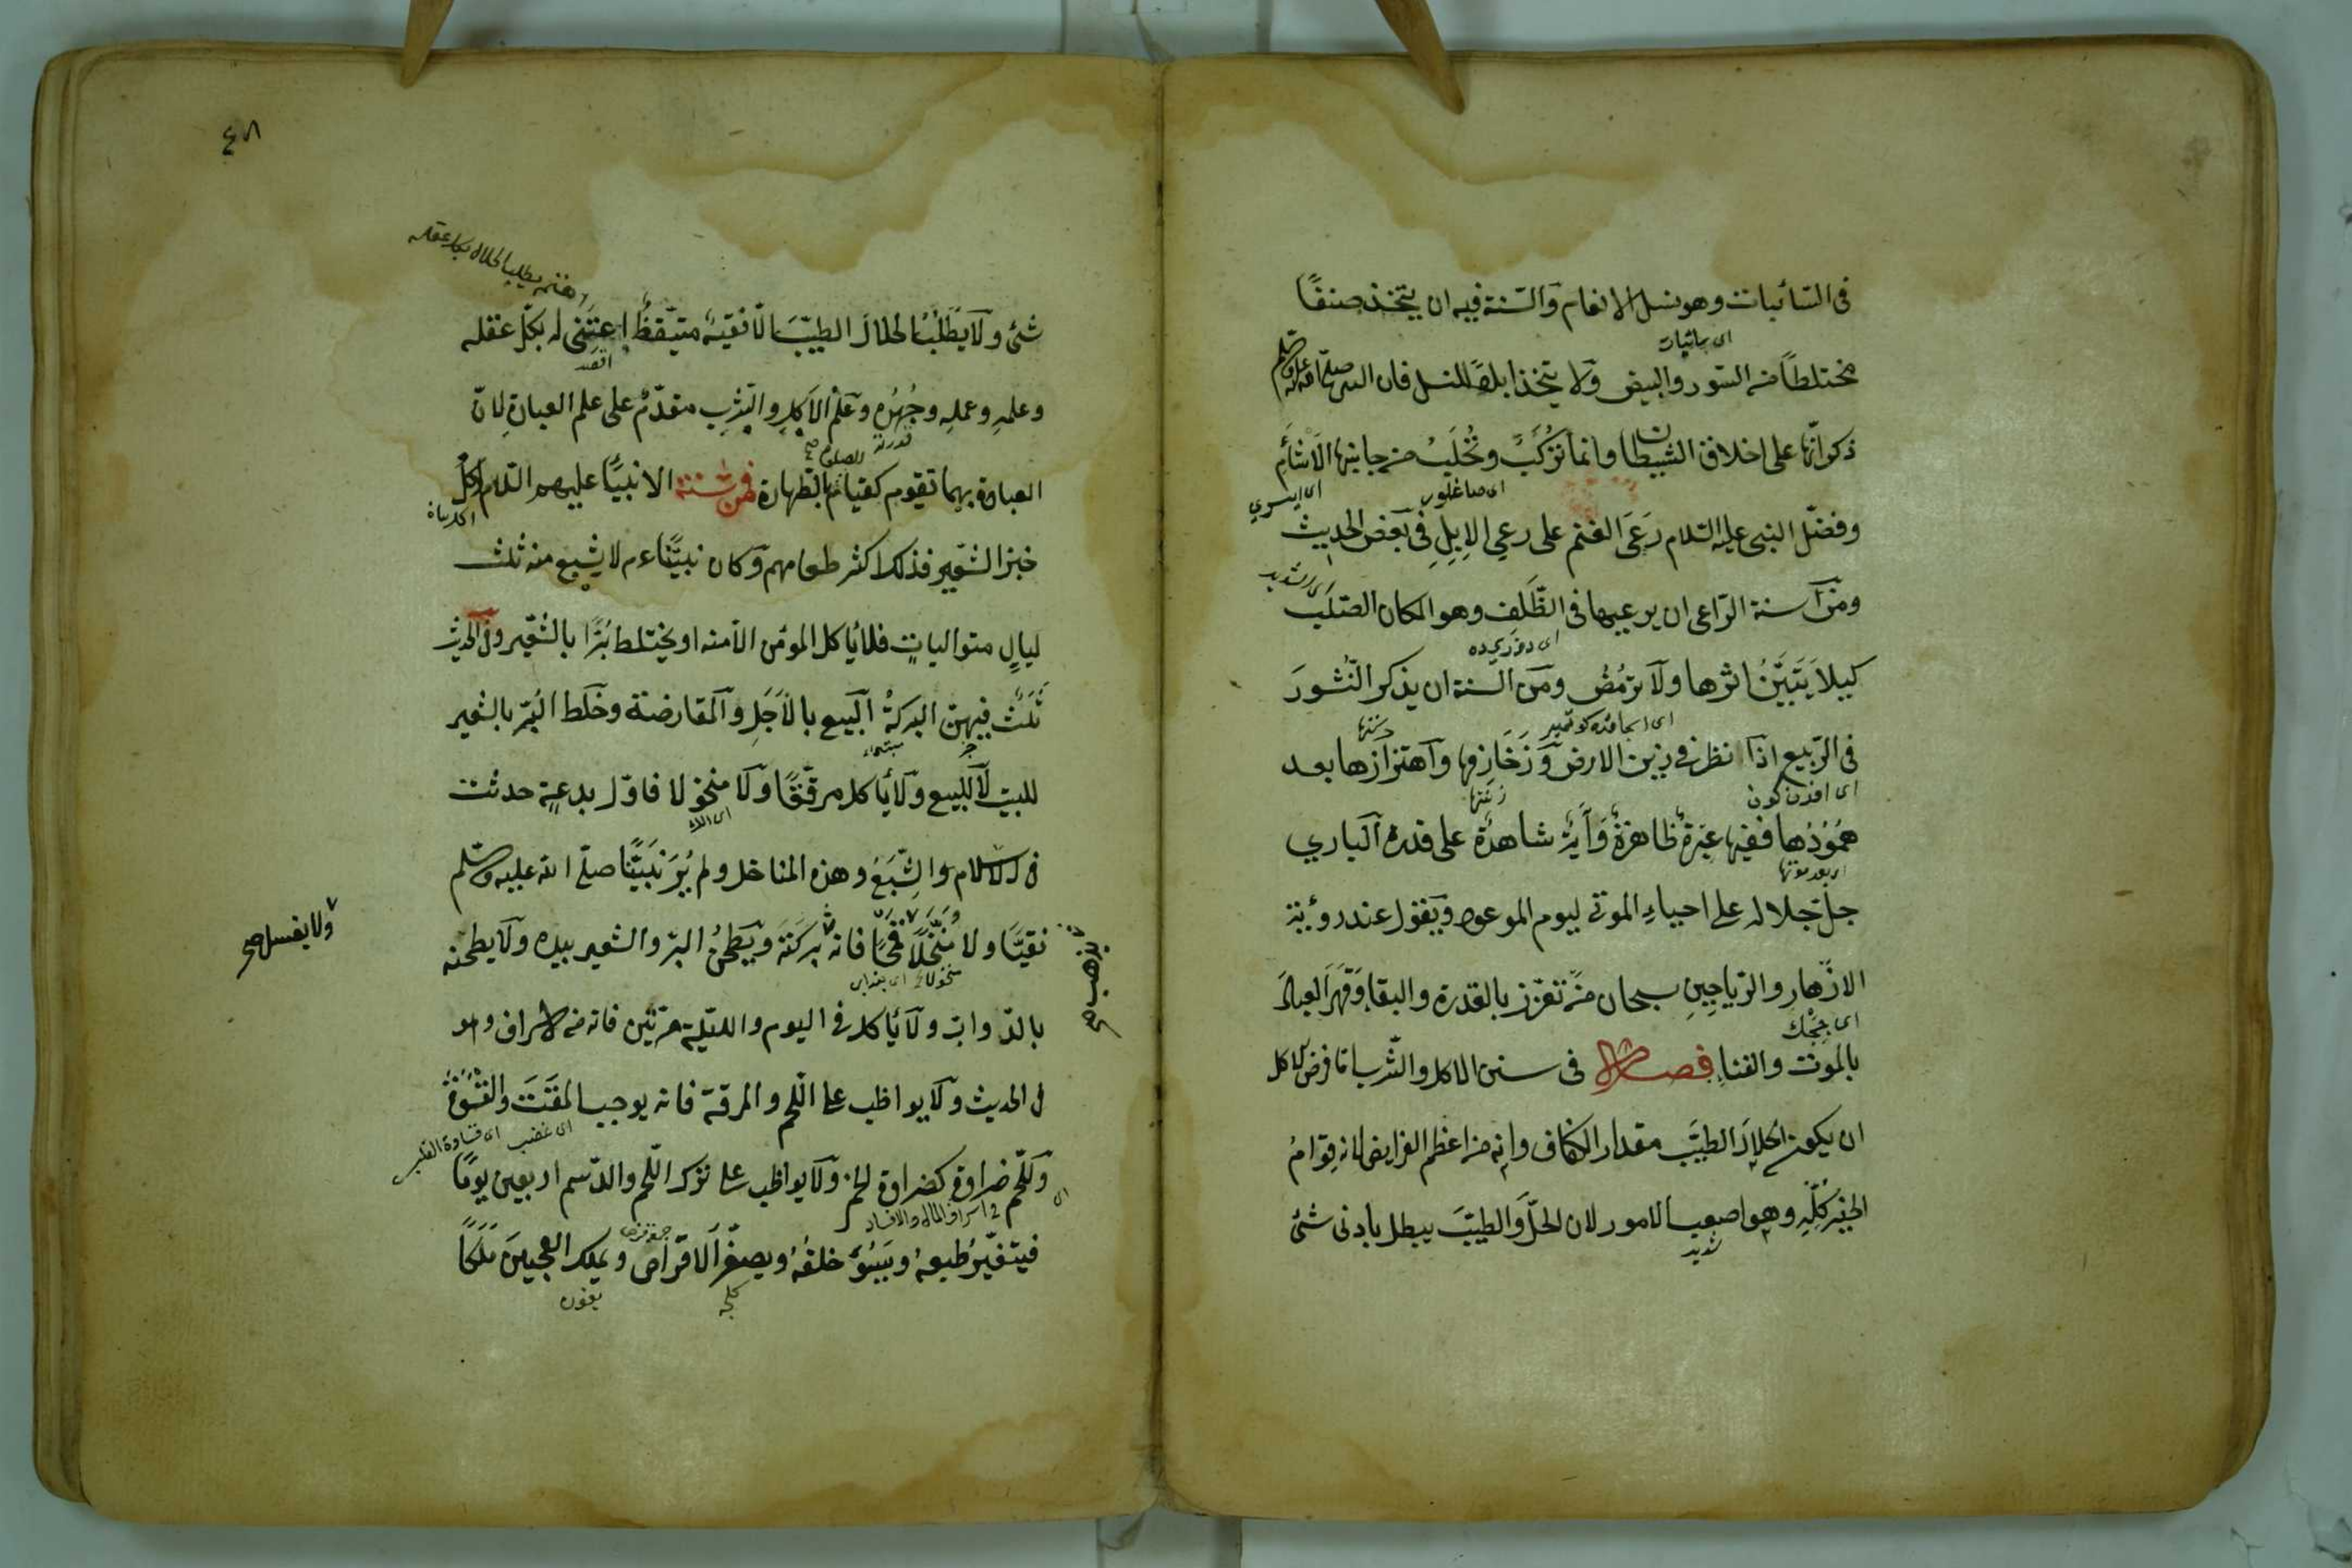 فى السائبات وهو نسل الانعام والسنة فيه ان يتخذ صنفًا
مختلطًا من السود والبيض ولا يتخذ ابلا للنسل فان النبى صلى الله عليه وسلم
ذكر انها على اخلاق الشيطان وانما تركب وتحلب من جانبها الاشأم
اى صاغلور
وفضّل النبى عليه السلام رعى الغنم على رعي الابل فى بعض الحديث
ومن سنة الراعى ان يرعيها فى الظلف وهو المكان الصلب
كيلا يتبين اثرها ولا ترمض ومن السنة ان يذكر النشور
فى الربيع اذا نظر فى زين الارض وزخازفها واهتزازها بعد
همودها ففيها عبرة ظاهرة وآية شاهدة على قدرة الباري
اى بعد موتها
جل جلاله على احياء الموتى ليوم الموعود ويقول عند رؤية
الازهار والرياحين سبحان من تعزز بالقدرة والبقاء وقهر العباد
اى چچك
بالموت والفناء فصل فى سنن الاكل والشرب اما فرض الاكل
ان يكون الحلال الطيب مقدار الكفاف وانه من اعظم الفرايض لانه قوام
الخير كله وهو اصعب الامور لان الحل والطيب يبطل بادنى شئ
شديد
٤٨
اهتم بطلب الحلال بكل عقله
شئ ولا يطلب الحلال الطيب الا فقيه متيقظ اعتنى له بكل عقله
وعلمه وعمله وجهده وعلم الاكل والشرب مقدم على علم العبادة لان
العبادة بهما تقوم كقيام الصلوة بالطهارة فمن سنة الانبيا عليهم السلام اكل
خبز الشعير فذلك اكثر طعامهم وكان نبينا عم لا يشبع منه ثلث
ليال متواليات فلا يأكل المؤمن الا منه او يختلط برا بالشعير وفى الحديث
ثلث فيهن البركة البيع بالاجل والمقارضة وخلط البر بالشعير
للبيت لا للبيع ولا يأكل مرققًا ولا منخولا فاول بدعة حدثت
فى الاسلام الشبع وهذه المناخل ولم ير نبينا صلى الله عليه وسلم
نقيا ولا منخلا فانه بركته ويطحن البر والشعير بيده ولا يطحنه
ولا يغسل صح
يذهب صح
بالدواب ولا يأكل فى اليوم والليلة مرتين فانه من الاسراف وهو
فى الحديث ولا يواظب على اللحم والمرقة فانه يوجب المقت والقسوة
اى غضب اى قساوة القلب
وللحم ضراوة كضراوة الخمر ولا يواظب على ترك اللحم والدسم اربعين يومًا
فى اسراف المال والافساد
فيتغير طبعه ويسوء خلقه ويصغر الاقراص ويملك العجين ملكًا